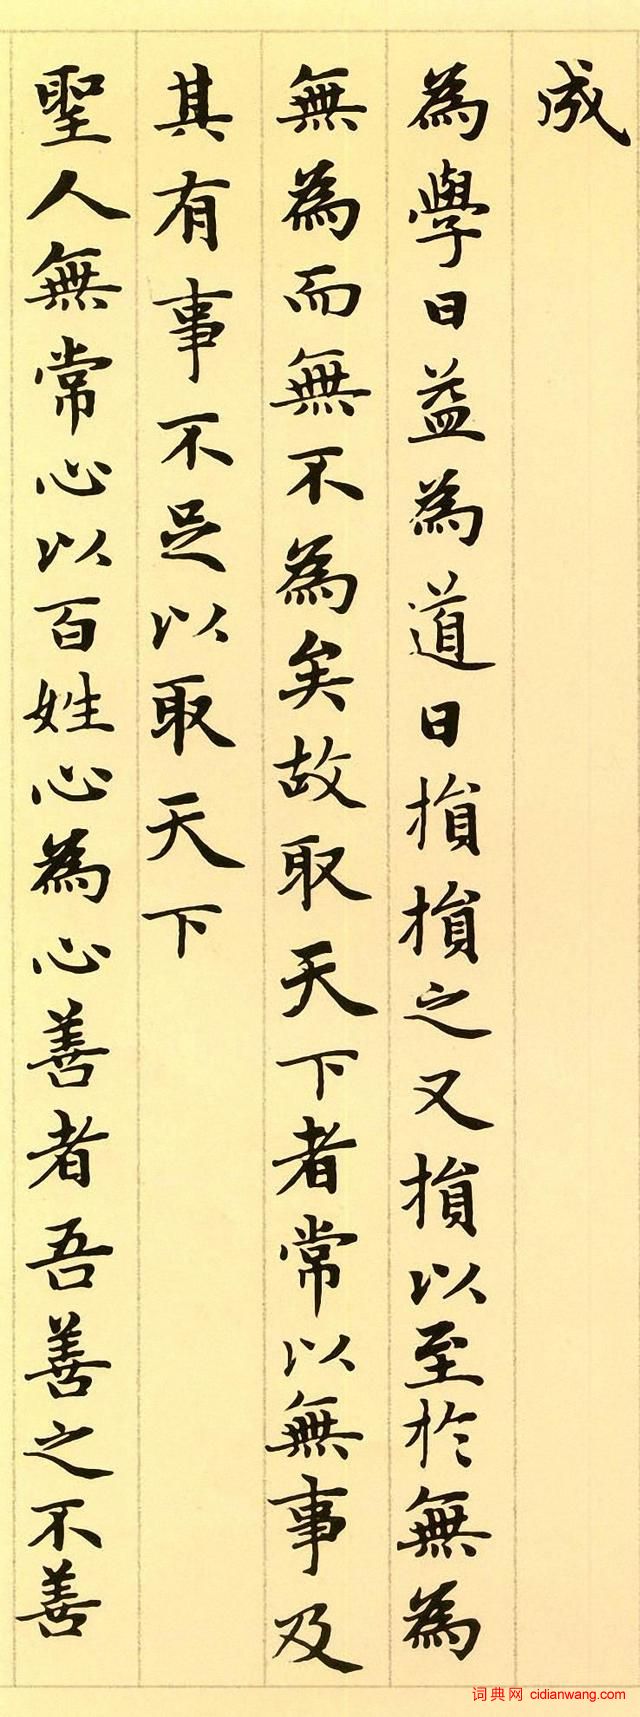 成
為學日益為道日損損之又損以至於無為
無為而無不為矣故取天下者常以無事及
其有事不足以取天下
聖人無常心以百姓心為心善者吾善之不善
词典网 cidianwang.com